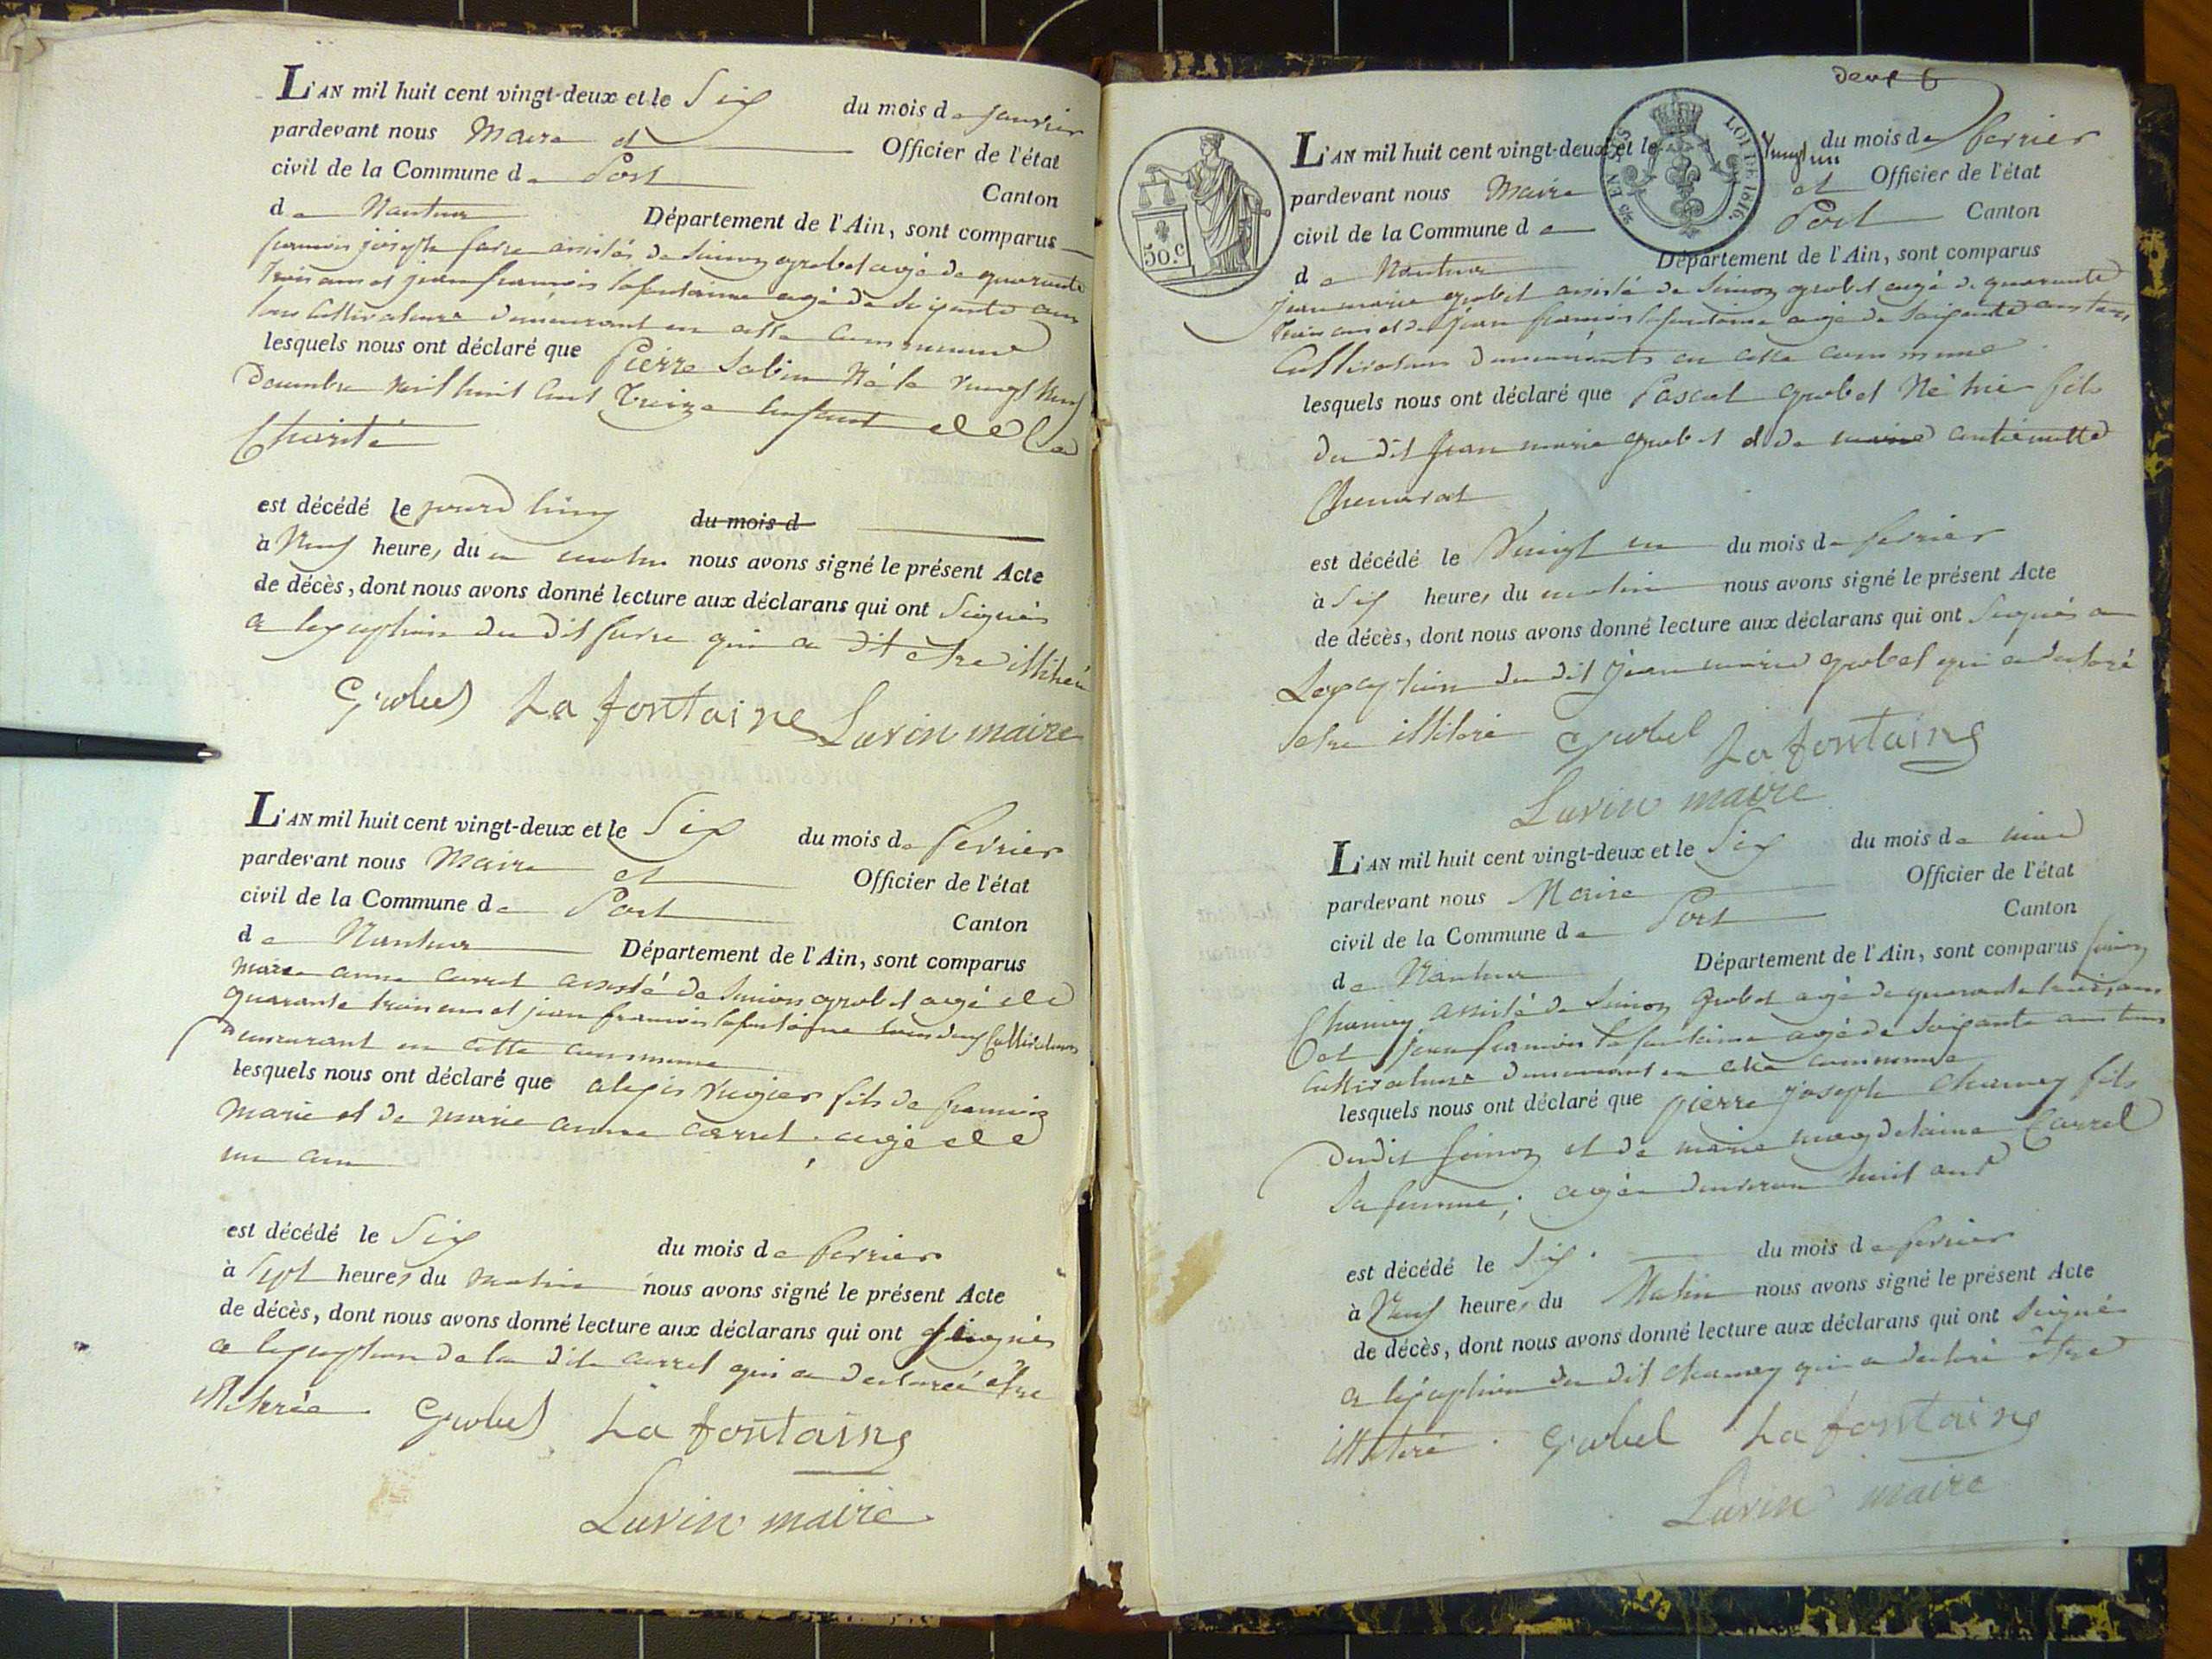 L'AN mil huit cent vingt-deux et le Six du mois de janvier
pardevant nous Maire et Officier de l'état
civil de la Commune de Port Canton
de Nantua Département de l'Ain, sont comparus
françois joseph favre assistés de Simon grobel agé de quarante
trois ans et jean françois lafontaine agé de soixante ans
tous Cultivateurs demeurant en cette commune
lesquels nous ont déclaré que Pierre Sabin Né le vingt Neuf
Decembre mil huit cent treize enfant de la
Charité
est décédé le jourd'huy du mois d
à Neuf heures du matin nous avons signé le présent Acte
de décès, dont nous avons donné lecture aux déclarans qui ont Signés
a lexception du dit favre qui a dit etre illiteré
Grobel La fontaine Luvin maire
L'AN mil huit cent vingt-deux et le Six du mois de fevrier
pardevant nous Maire et Officier de l'état
civil de la Commune de Port Canton
de Nantua Département de l'Ain, sont comparus
marie anne carrel assisté de Simon grobel agé de
quarante trois ans et jean francois lafontaine tous deux Cultivateurs
demeurant en cette commune
lesquels nous ont déclaré que alexis fils de francois
marie et de marie anne carrel agé de
un an
est décédé le Six du mois de fevrier
à Sept heures du matin nous avons signé le présent Acte
de décès, dont nous avons donné lecture aux déclarans qui ont signés
a lexception de la dite carrel qui a declareé etre
illiterée Grobel La fontaine
Luvin maire
deux
50.c
EN SUS LOI DE 1816.
L'AN mil huit cent vingt-deux et le vingt un du mois de fevrier
pardevant nous Maire et Officier de l'état
civil de la Commune de Port Canton
de Nantua Département de l'Ain, sont comparus
jean marie grobel assisté de Simon grobel agé de quarante
trois ans et de jean francois lafontaine agé de soixante ans tous
Cultivateurs demeurants en cette commune
lesquels nous ont déclaré que Pascal grobel Né hier fils
du dit jean marie grobel et de marie antoinette
est décédé le Vingt un du mois de fevrier
à Six heures du matin nous avons signé le présent Acte
de décès, dont nous avons donné lecture aux déclarans qui ont Signés a
Lexception du dit jean marie grobel qui a declaré
etre illiteré Grobel La fontaine
Luvin maire
L'AN mil huit cent vingt-deux et le Six du mois de mars
pardevant nous Maire Officier de l'état
civil de la Commune de Port Canton
de Nantua Département de l'Ain, sont comparus Simon
Charney assisté de Simon Grobel agé de quarante trois ans
et jean francois lafontaine agé de soixante ans tous
Cultivateurs demeurant en cette commune
lesquels nous ont déclaré que pierre joseph Charney fils
dudit Simon et de marie magdelaine Carrel
Sa femme, agé denviron huit ans
est décédé le Six du mois de fevrier
à Neuf heures du Matin nous avons signé le présent Acte
de décès, dont nous avons donné lecture aux déclarans qui ont Signé
a lexception du dit Charney qui a declaré être
illiteré Grobel La fontaine
Luvin maire